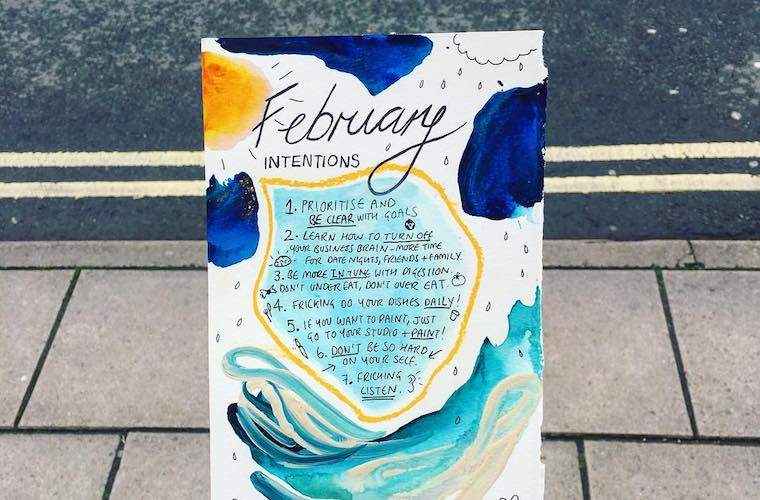 February
INTENTIONS
1. PRIORITISE AND
BE CLEAR WITH GOALS
2. LEARN HOW TO TURN OFF
YOUR BUSINESS BRAIN - MORE TIME
FOR DATE NIGHTS, FRIENDS + FAMILY.
3. BE MORE IN TUNE WITH DIGESTION.
DON'T UNDER EAT, DON'T OVER EAT.
4. FRICKING DO YOUR DISHES DAILY!
5. IF YOU WANT TO PAINT, JUST
GO TO YOUR STUDIO + PAINT!
6. DON'T BE SO HARD
ON YOUR SELF.
7. FRICKING
LISTEN.